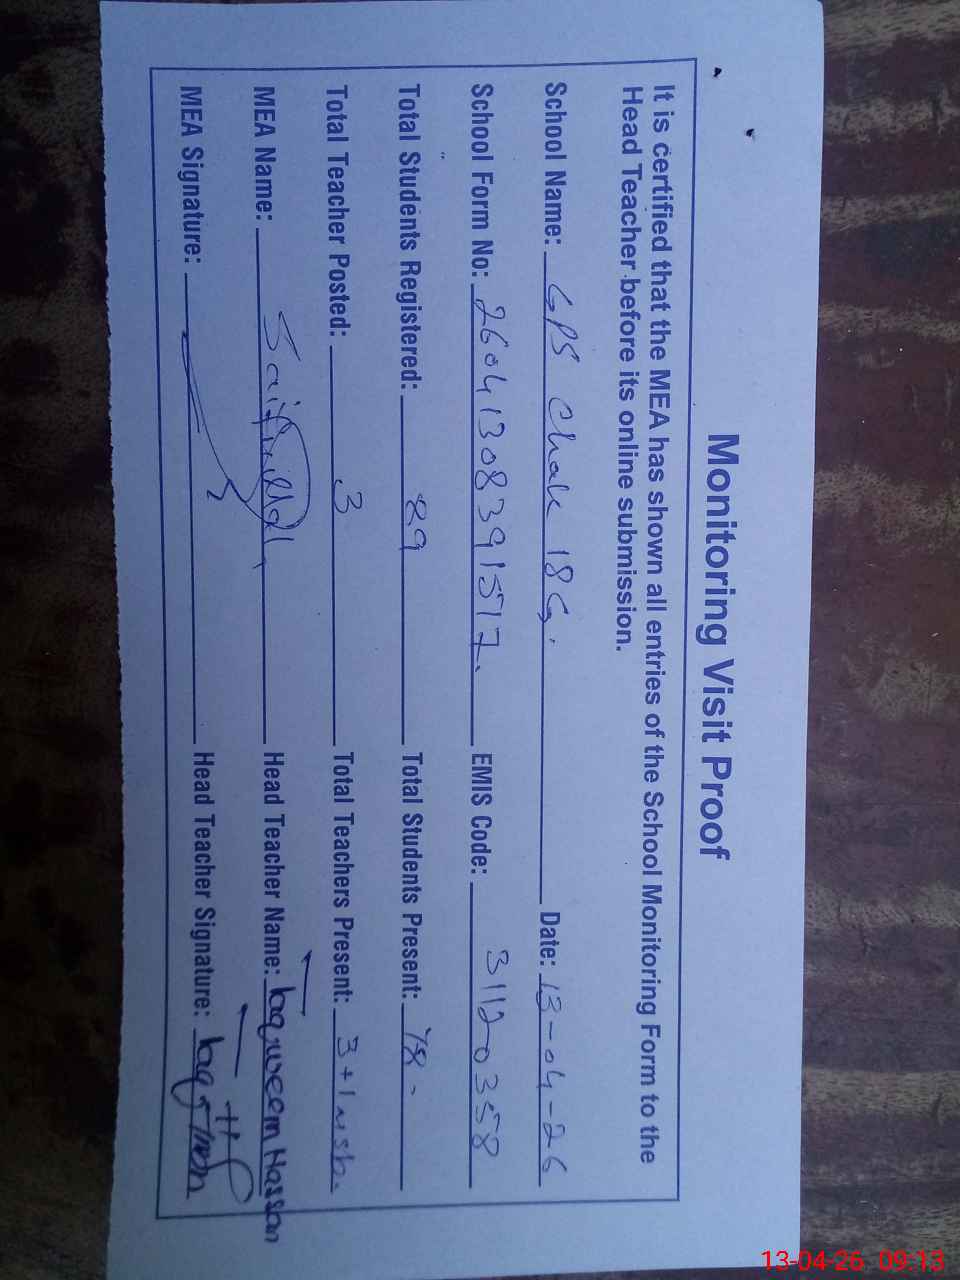 Monitoring Visit Proof
It is certified that the MEA has shown all entries of the School Monitoring Form to the
Head Teacher before its online submission.
School Name: GPS Chak 18G. Date: 13-04-26
School Form No: 26041308391517. EMIS Code: 31120358
Total Students Registered: 89 Total Students Present: 78-
Total Teacher Posted: 3 Total Teachers Present: 3+1
MEA Name: Saifullah Head Teacher Name: Taqweem Hassan
MEA Signature: Head Teacher Signature:
13-04-26 09:13